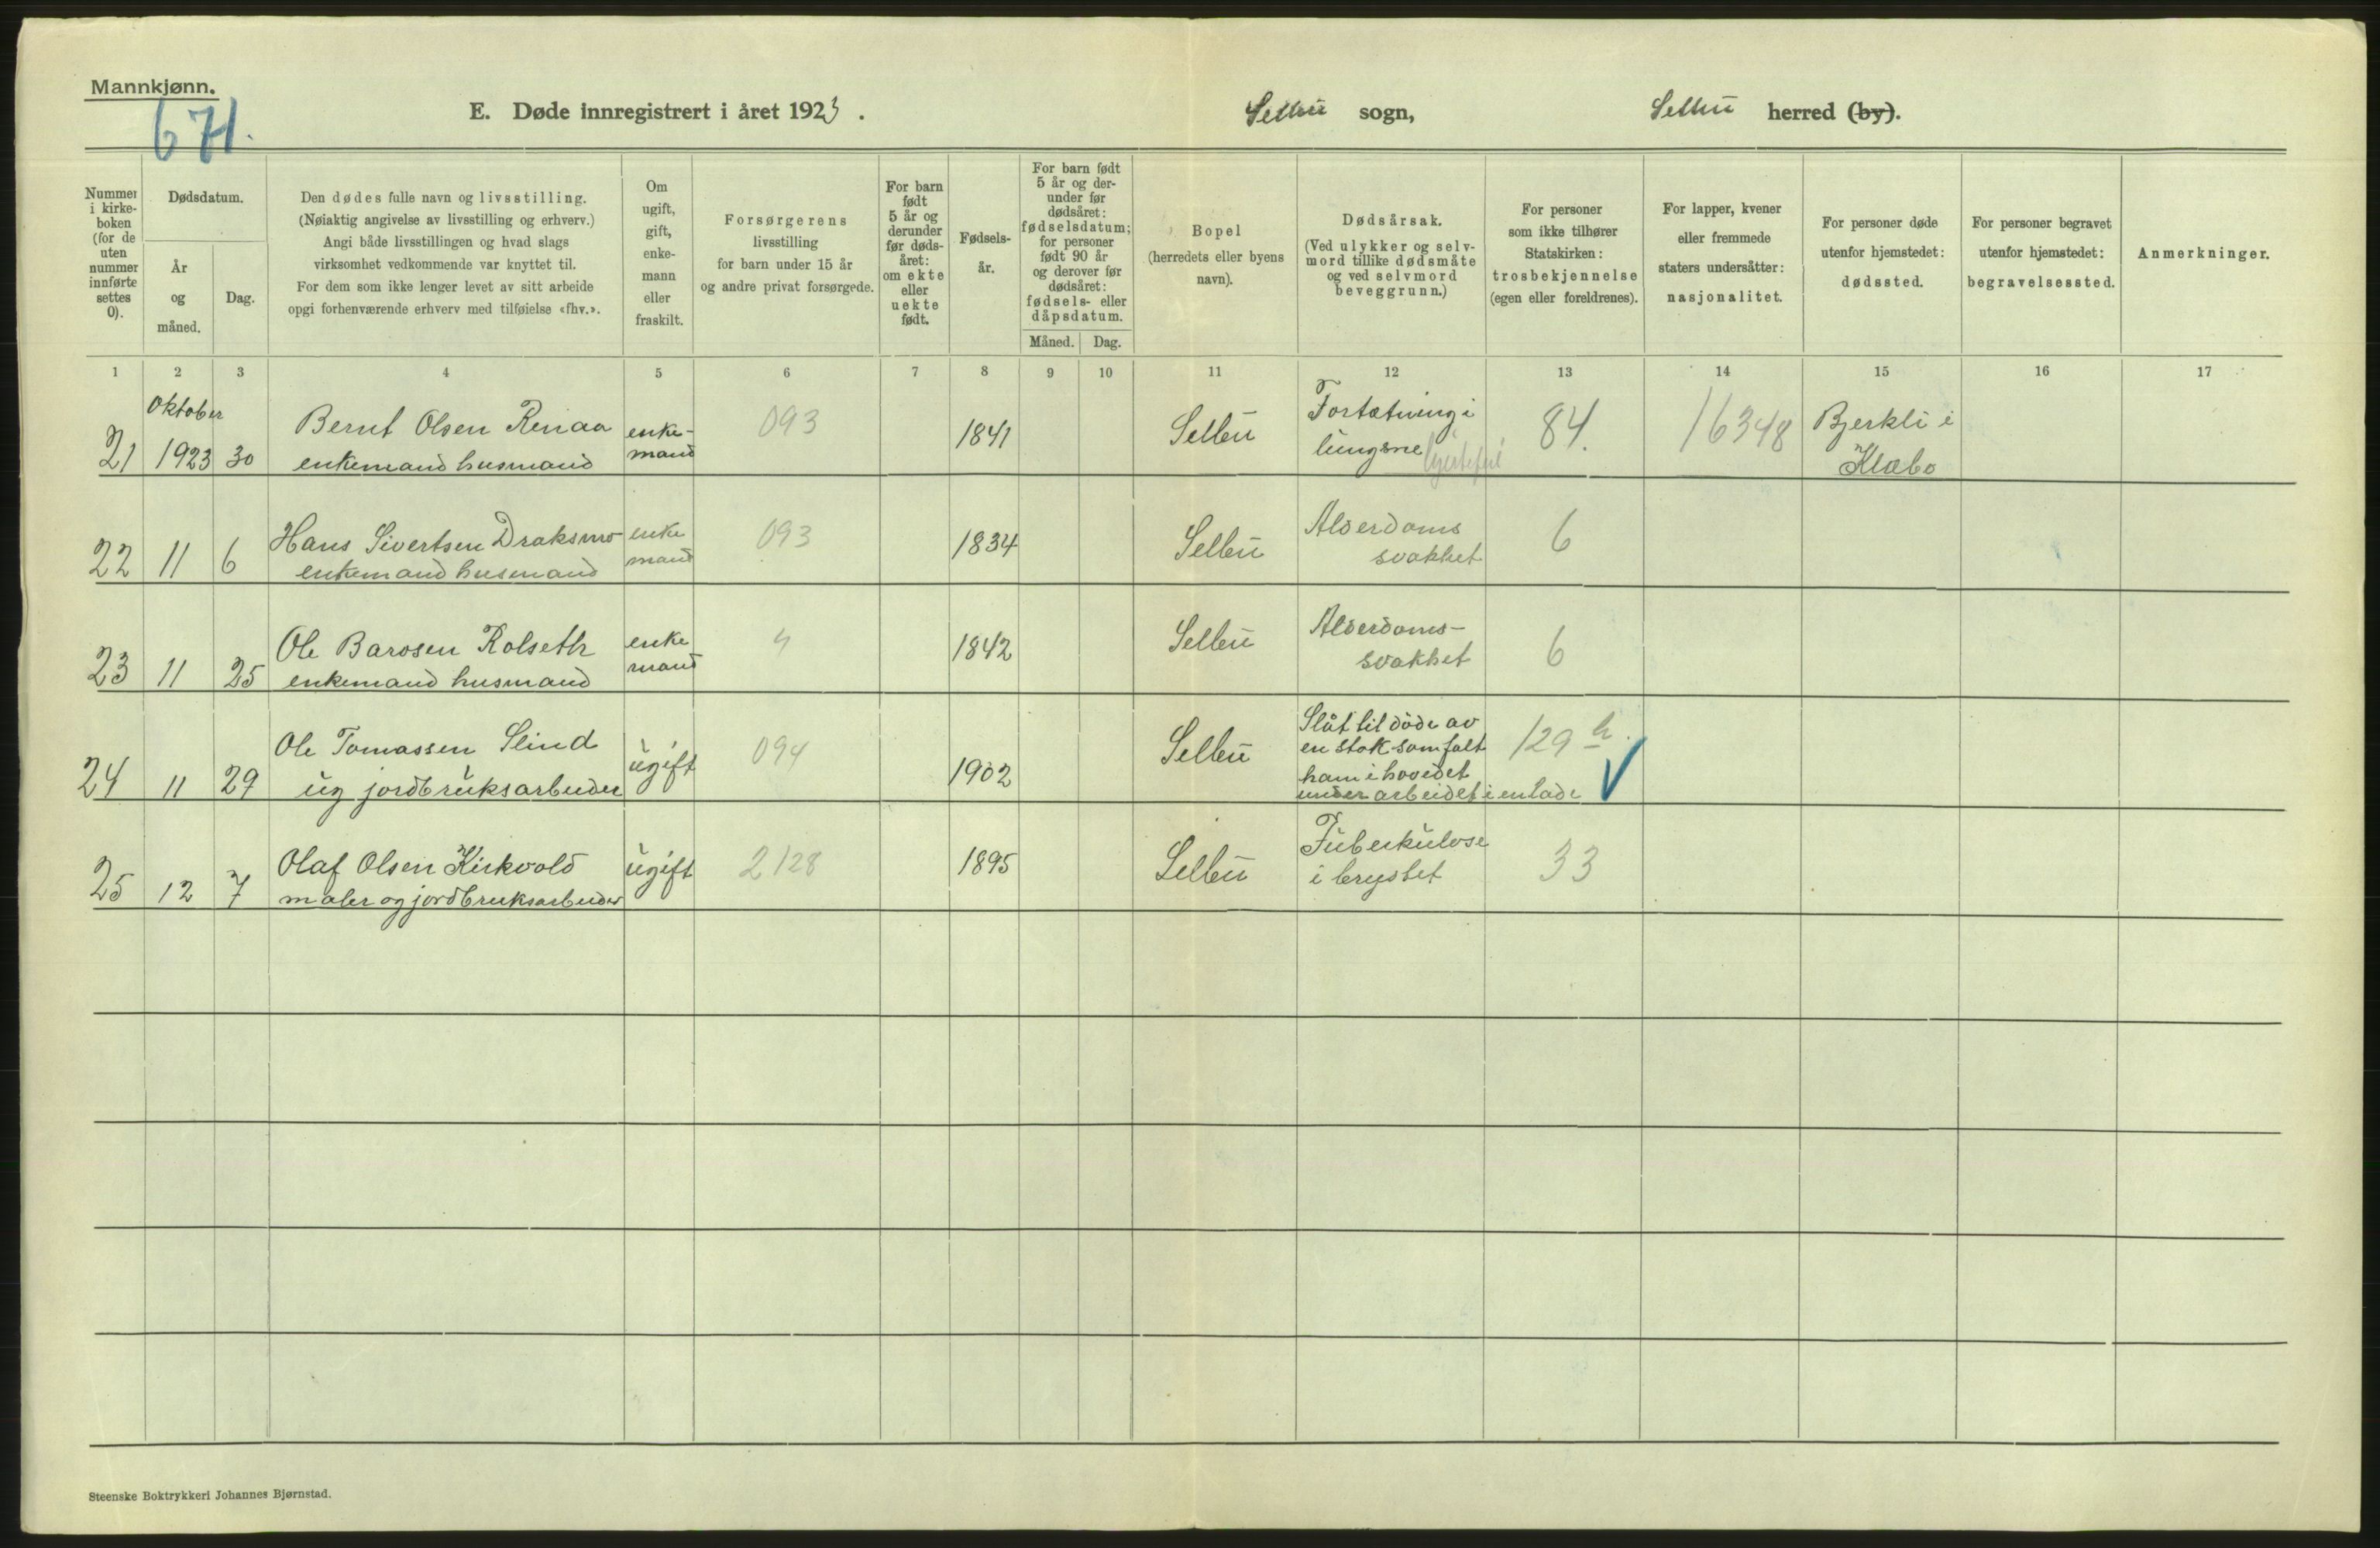 Mannkjønn.
671.
E. Døde innregistrert i året 1923.
Selbu sogn,
Selbu herred (by).
Nummer
i kirke-
boken
(for de
uten
nummer
innførte
settes
0).
Dødsdatum.
År
og
måned.
Dag.
Den dødes fulle navn og livsstilling.
(Nøiaktig angivelse av livsstilling og erhverv.)
Angi både livsstillingen og hvad slags
virksomhet vedkommende var knyttet til.
For dem som ikke lenger levet av sitt arbeide
opgi forhenværende erhverv med tilføielse «fhv.».
Om
ugift,
gift,
enke-
mann
eller
fraskilt.
Forsørgerens
livsstilling
for barn under 15 år
og andre privat forsørgede.
For barn
født
5 år og
derunder
før døds-
året:
om ekte
eller
uekte
født.
Fødsels-
år.
For barn født
5 år og der-
under før
dødsåret:
fødselsdatum;
for personer
født 90 år
og derover før
dødsåret:
fødsels- eller
dåpsdatum.
Måned.
Dag.
Bopel
(herredets eller byens
navn).
Dødsårsak.
(Ved ulykker og selv-
mord tillike dødsmåte
og ved selvmord
beveggrunn.)
For personer
som ikke tilhører
Statskirken:
trosbekjennelse
(egen eller foreldrenes).
For lapper, kvener
eller fremmede
staters undersåtter:
nasjonalitet.
For personer døde
utenfor hjemstedet:
dødssted.
For personer begravet
utenfor hjemstedet:
begravelsessted.
Anmerkninger.
1 2 3 4 5 6 7 8 9 10 11 12 13 14 15 16 17
Oktober
21 1923 30
Bernt Olsen Renaa
enkemand husmand
enke-
mand
093
1841
Selbu
Fortætning i
lungene hjertefeil
84.
16348
Bjerkli i
Klæbo
22 11 6
Hans Sivertsen Draksmo
enkemand husmand
enke
mand
093
1834
Selbu
Alderdoms
svakhet
6
23 11 25
Ole Barosen Rolseth
enkemand husmand
enke
mand
4
1842
Selbu
Alderdoms-
svakhet
6
24 11 29
Ole Tomassen Slind
ug jordbruksarbeider
ugift
094
1902
Selbu
Slåt til døde av
en stok som falt
ham i hovedet
under arbeidet i en lade
129 h.
25 12 7
Olaf Olsen Kirkvold
maler og jordbruksarbeider
ugift
2128
1895
Selbu
Tuberkulose
i brystet
33
Steenske Boktrykkeri Johannes Bjørnstad.